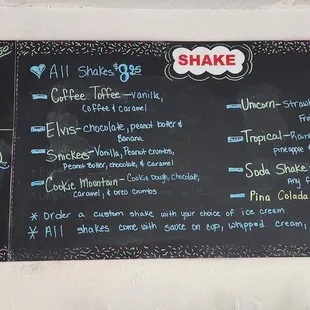 SHAKE
All Shakes $8.25
Coffee Toffee - Vanilla,
Coffee & caramel
Elvis - chocolate, peanut butter &
Banana
Snickers - Vanilla, Peanut crumbs,
Peanut Butter, chocolate, & caramel
Cookie Mountain - Cookie Dough, chocolate,
caramel, & oreo crumbs
Unicorn - Straw
Tropical - Rain
pineapple
Soda Shake
Any f
Pina Colada
* Order a custom shake with your choice of ice cream
* All shakes come with sauce on cup, whipped cream,